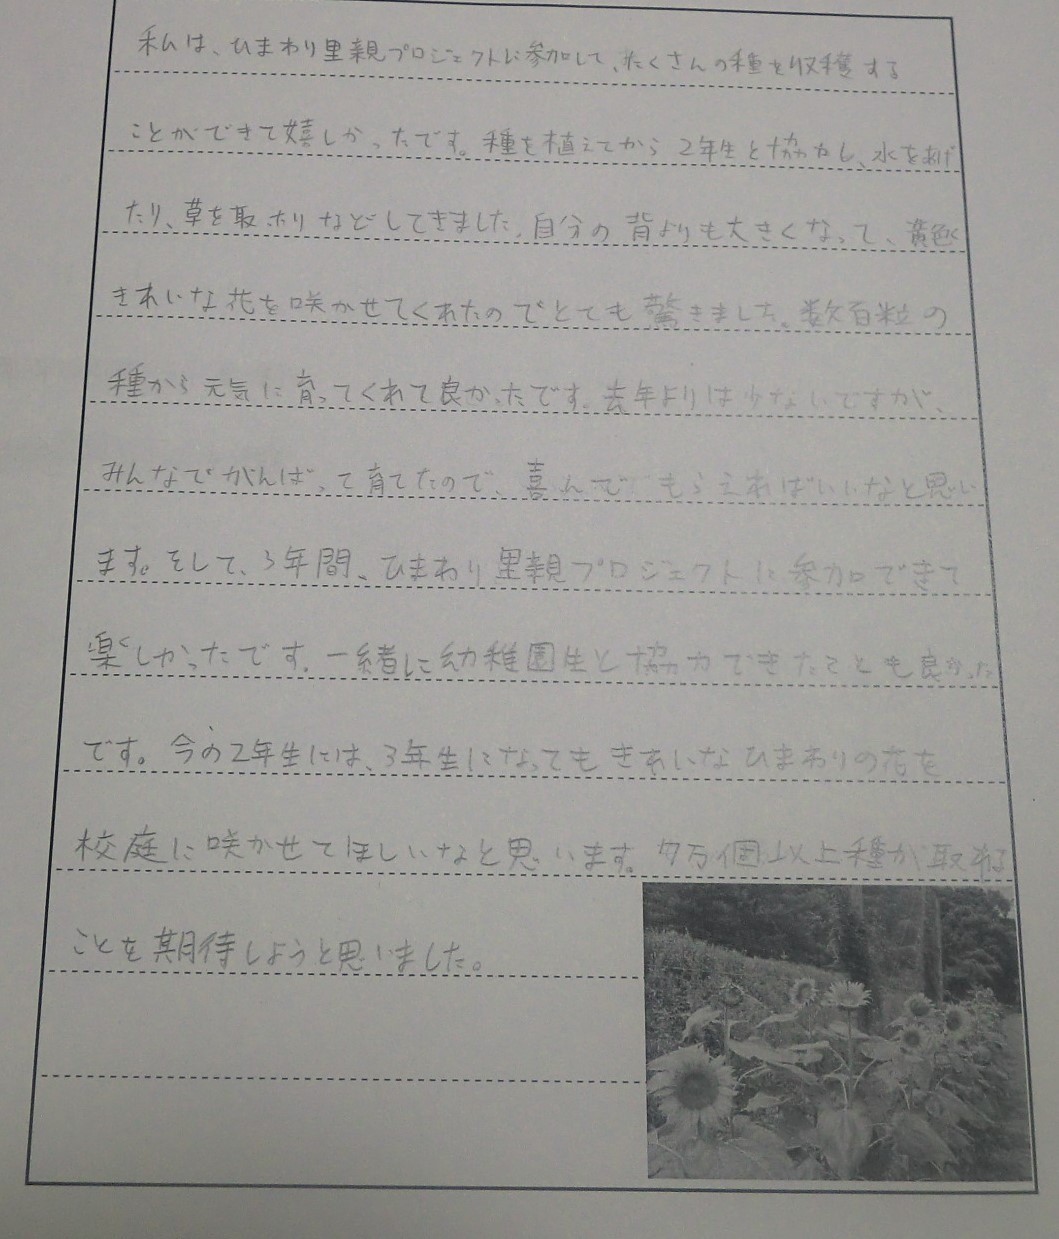 私は、ひまわり里親プロジェクトに参加して、たくさんの種を収穫する
ことができて嬉しかったです。種を植えてから2年生と協力し、水をあげ
たり、草を取ったりなどしてきました。自分の背よりも大きくなって、黄色く
きれいな花を咲かせてくれたのでとても驚きました。数百粒の
種から元気に育ってくれて良かったです。去年よりは少ないですが、
みんなでがんばって育てたので、喜んでもらえればいいなと思い
ます。そして、3年間、ひまわり里親プロジェクトに参加できて
楽しかったです。一緒に幼稚園生と協力できたことも良かった
です。今の2年生には、3年生になってもきれいなひまわりの花を
校庭に咲かせてほしいなと思います。万個以上種が取れる
ことを期待しようと思いました。